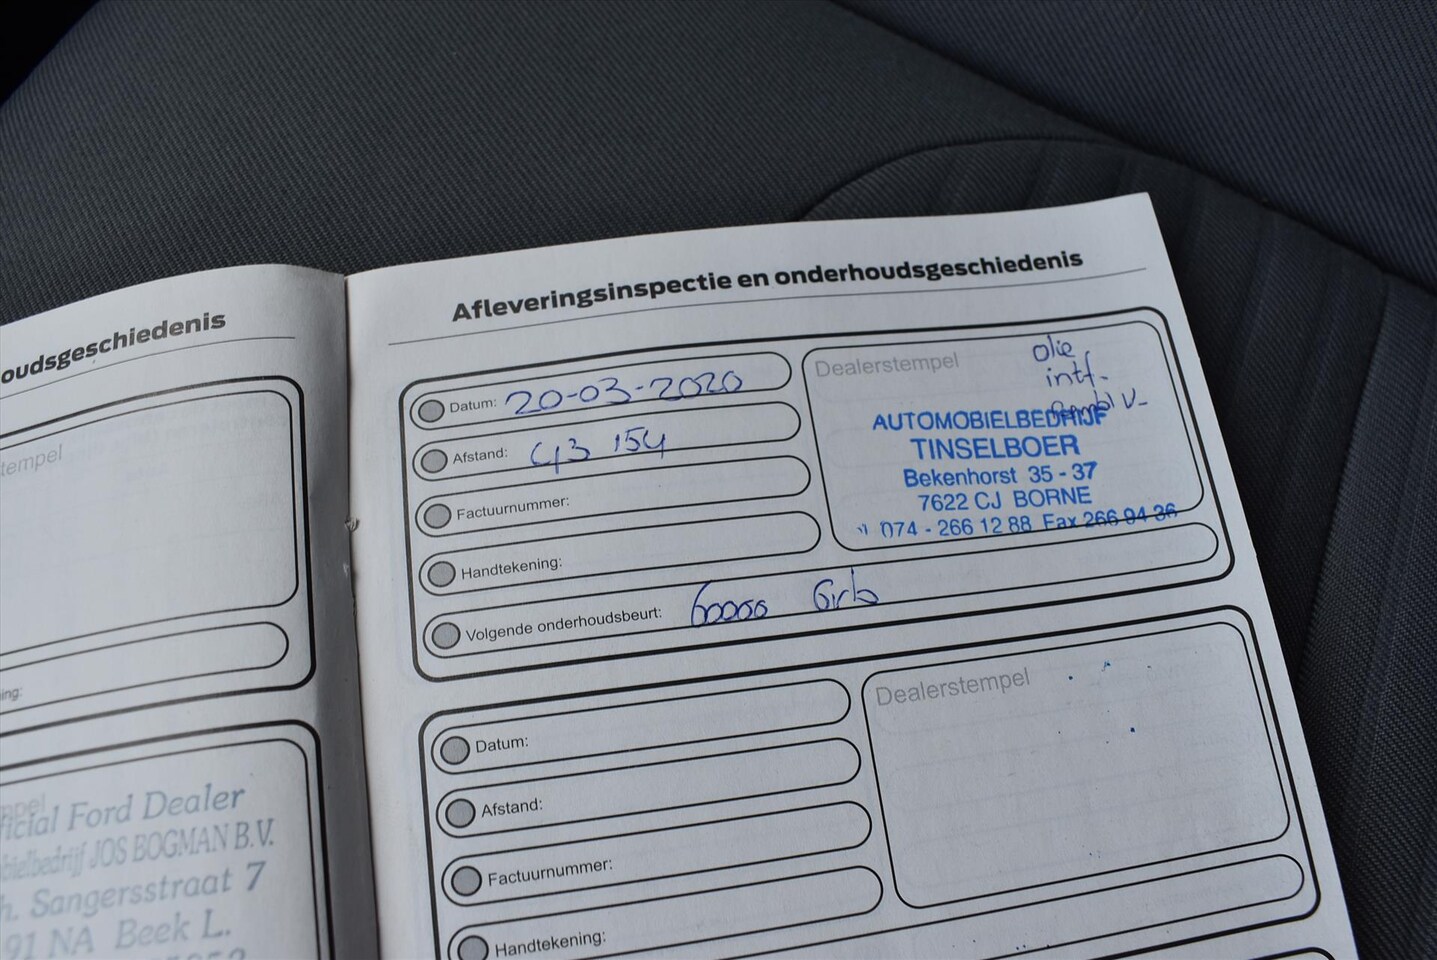 oudsgeschiedenis
tempel
ing:
Official Ford Dealer
JOS BOGMAN B.V.
Sangersstraat 7
91 NA Beek L.
Afleveringsinspectie en onderhoudsgeschiedenis
Datum: 20-03-2020
Afstand: 43 154
Factuurnummer:
Handtekening:
Volgende onderhoudsbeurt: 60000
Dealerstempel
olie
AUTOMOBIELBEDRIJF
TINSELBOER
Bekenhorst 35 - 37
7622 CJ BORNE
074 - 266 12 88 Fax 266 94 36
Datum:
Afstand:
Factuurnummer:
Handtekening:
Dealerstempel